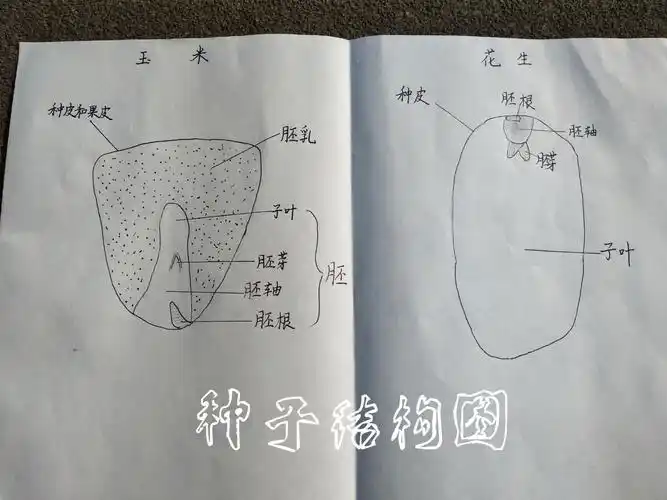 玉 米
种皮和果皮
胚乳
子叶
胚芽
胚轴
胚根
胚
花 生
种皮
胚根
胚轴
胚芽
子叶
种子结构图